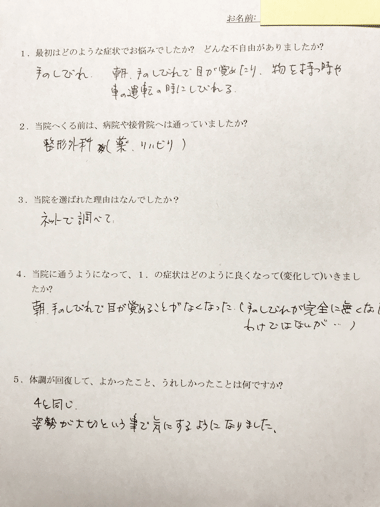 お名前:
1．最初はどのような症状でお悩みでしたか？ どんな不自由がありましたか?
手のしびれ. 朝、手のしびれで目が覚めたり、物を持つ時や
車の運転の時にしびれる.
2．当院へくる前は、病院や接骨院へは通っていましたか?
整形外科 (薬、リハビリ)
3．当院を選ばれた理由はなんでしたか？
ネットで調べて.
4．当院に通うようになって、1．の症状はどのように良くなって(変化して)いきまし
たか?
朝、手のしびれで目が覚めることがなくなった.(手のしびれが完全に無くな
わけではないが…)
5．体調が回復して、よかったこと、うれしかったことは何ですか?
4と同じ.
姿勢が大切という事で気にするようになりました。